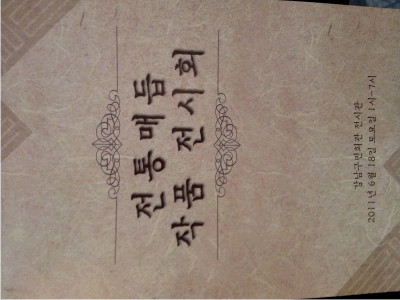 전통매듭
작품 전시회
강남구민회관 전시관
2011년 6월 18일 토요일 1시~7시